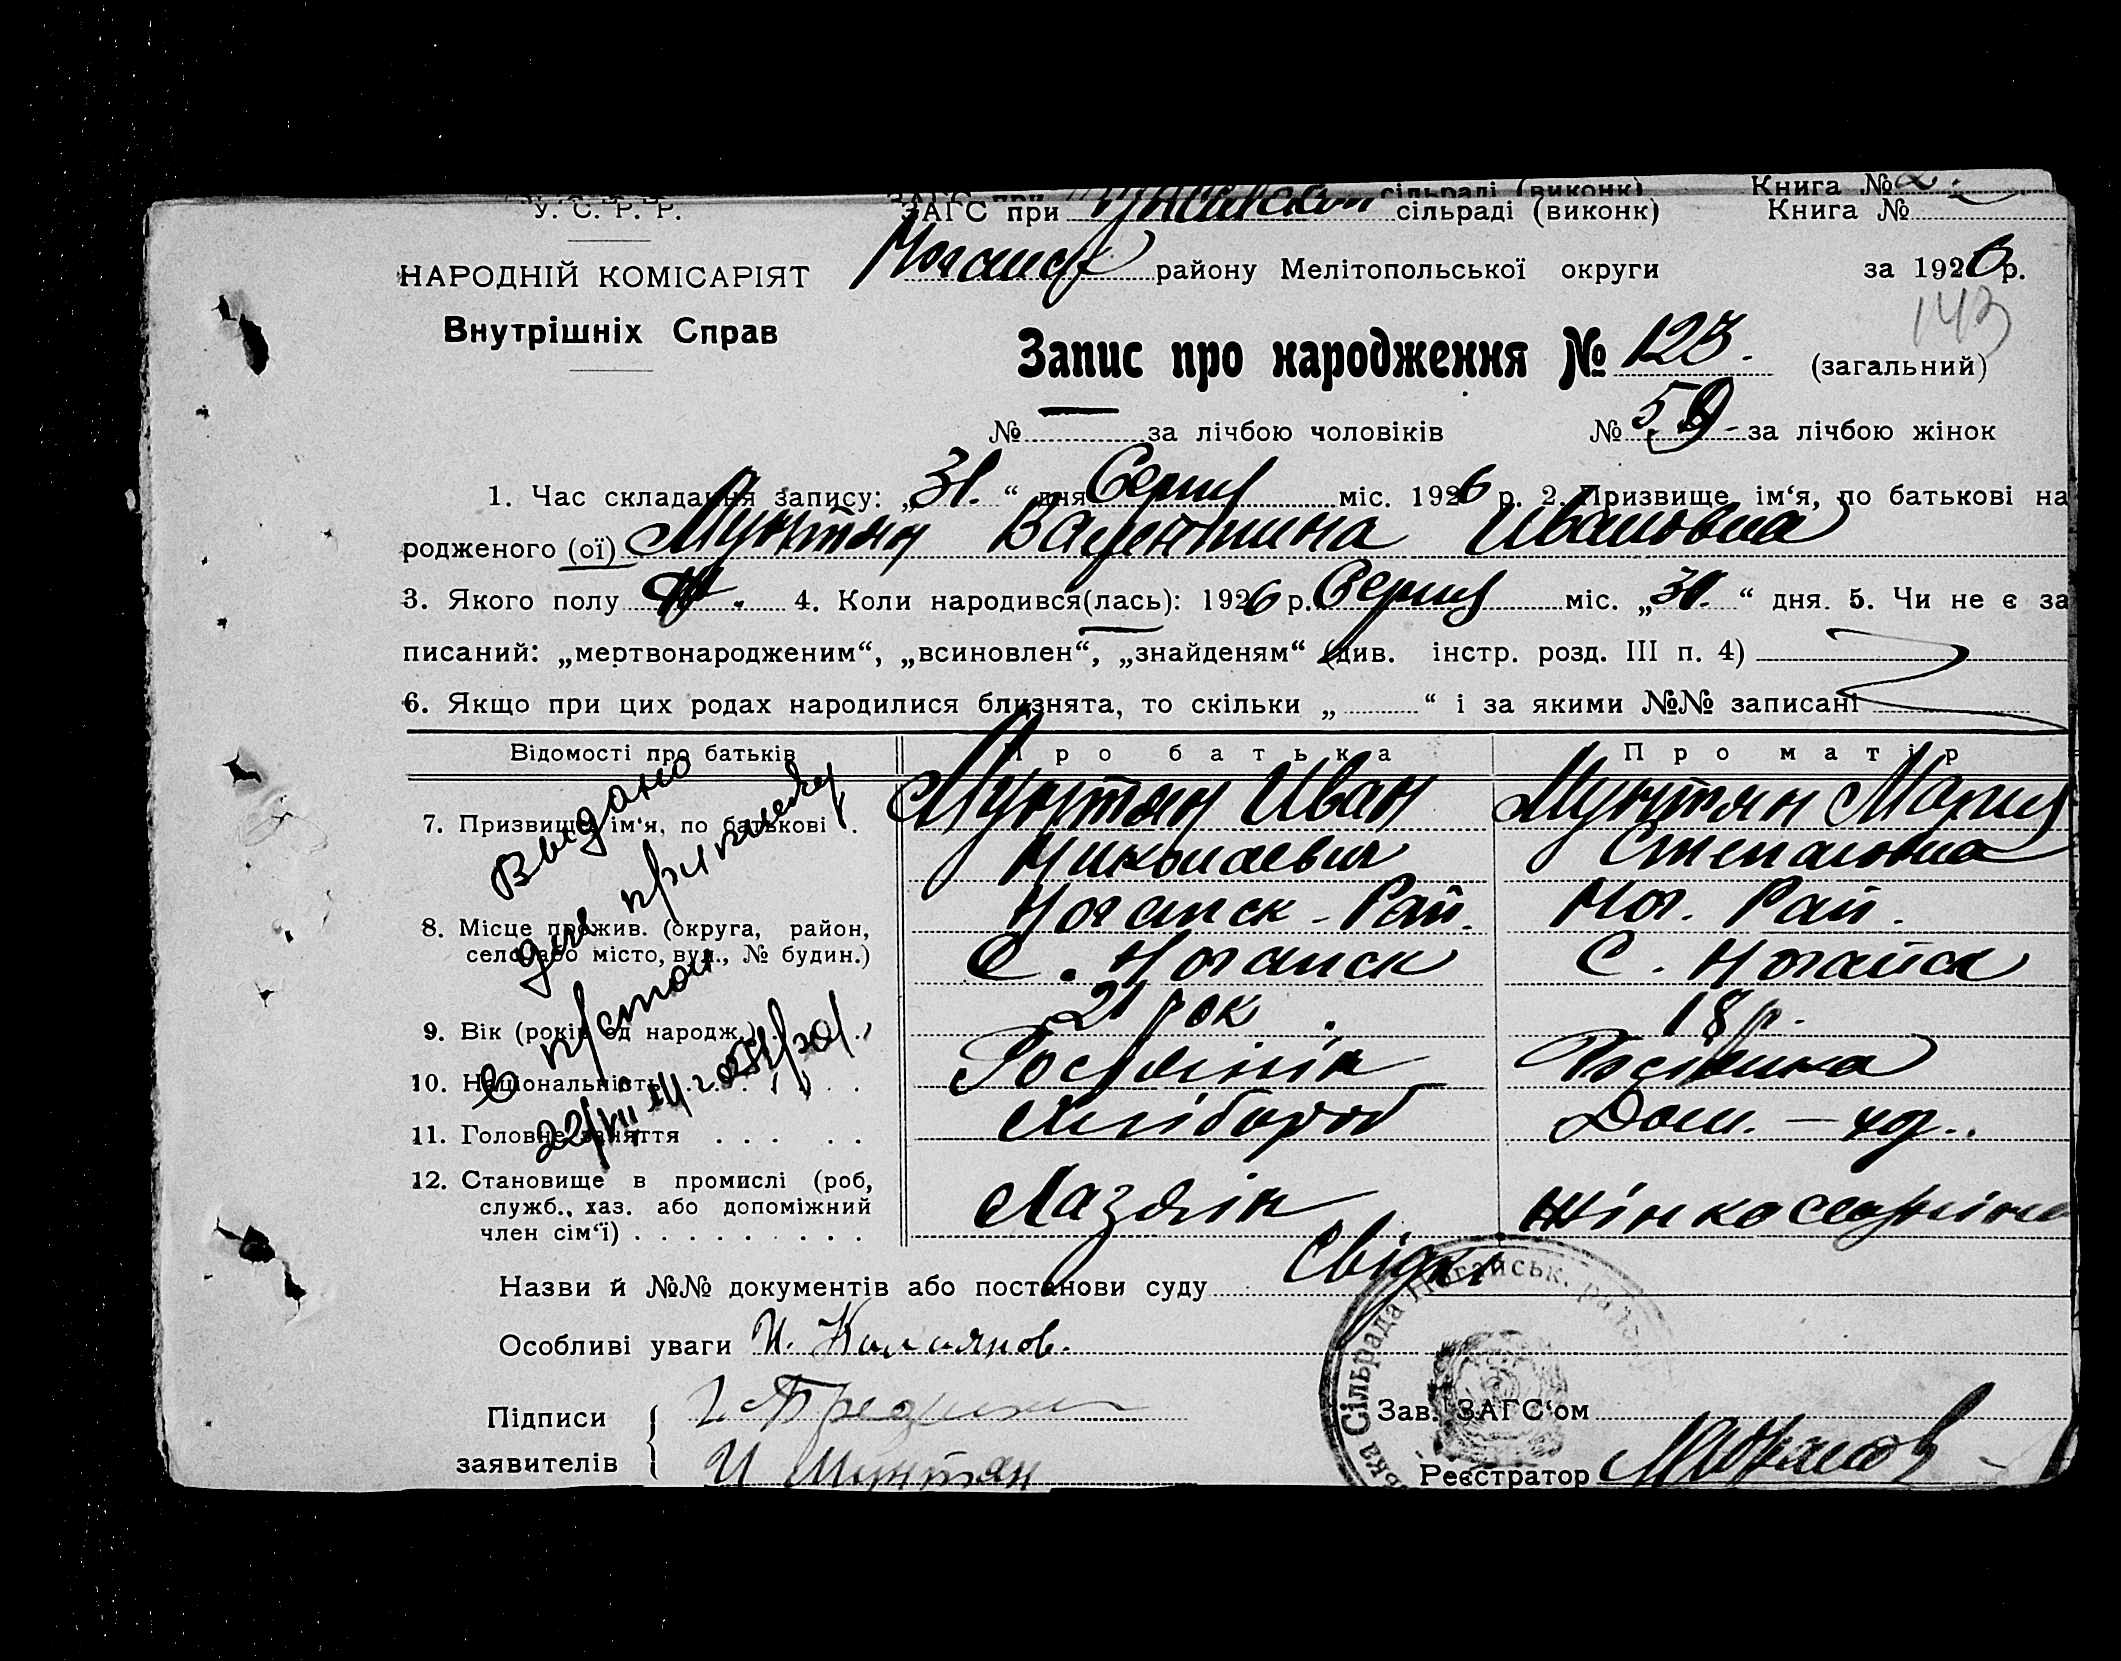 ЗАГС при сільраді (виконк) Книга № 2.
У. С. Р. Р. ЗАГС при сільраді (виконк) Книга №
Ногайск району Мелітопольської округи за 1926 р.
НАРОДНІЙ КОМІСАРІЯТ
Внутрішніх Справ
143
Запис про народження № 123. (загальний)
№ — за лічбою чоловіків № 59 за лічбою жінок
1. Час складання запису: „31.“ дня Серпня міс. 1926 р. 2. Призвище, ім‘я, по батькові на
родженого (ої) Мунтян Валентина Ивановна
3. Якого полу 4. Коли народився(лась): 1926 р. Серпня міс. „31.“ дня. 5. Чи не є за
писаний: „мертвонародженим“, „всиновлен“, „знайденям“ (див. інстр. розд. III п. 4)
6. Якщо при цих родах народилися близнята, то скільки „ “ і за якими №№ записані
Відомості про батьків Про батька Про матір
7. Призвище, ім‘я, по батькові . Мунтян Иван Мунтян Мария
Николаевич Степановна
8. Місце прожив. (округа, район, село або місто, вул., № будин.) Ногайск - Рай. Ног. Рай.
С. Ногайск С. Ногайск
9. Вік (років од народж.) . . 21 рок. 18 р.
10. Національність . . . . . .
11. Головне заняття . . . . . Хлібороб Дом. —
12. Становище в промислі (роб, служб., хаз. або допоміжний член сім‘ї) . . . . . . . . .
Выдано
для
в
22/VII
Назви й №№ документів або постанови суду Свідки
Особливі уваги И. Калаянов.
Підписи
заявителів И Мунтян
Зав. ЗАГС‘ом
Реєстратор
ька Сільрада Ногайськ. району